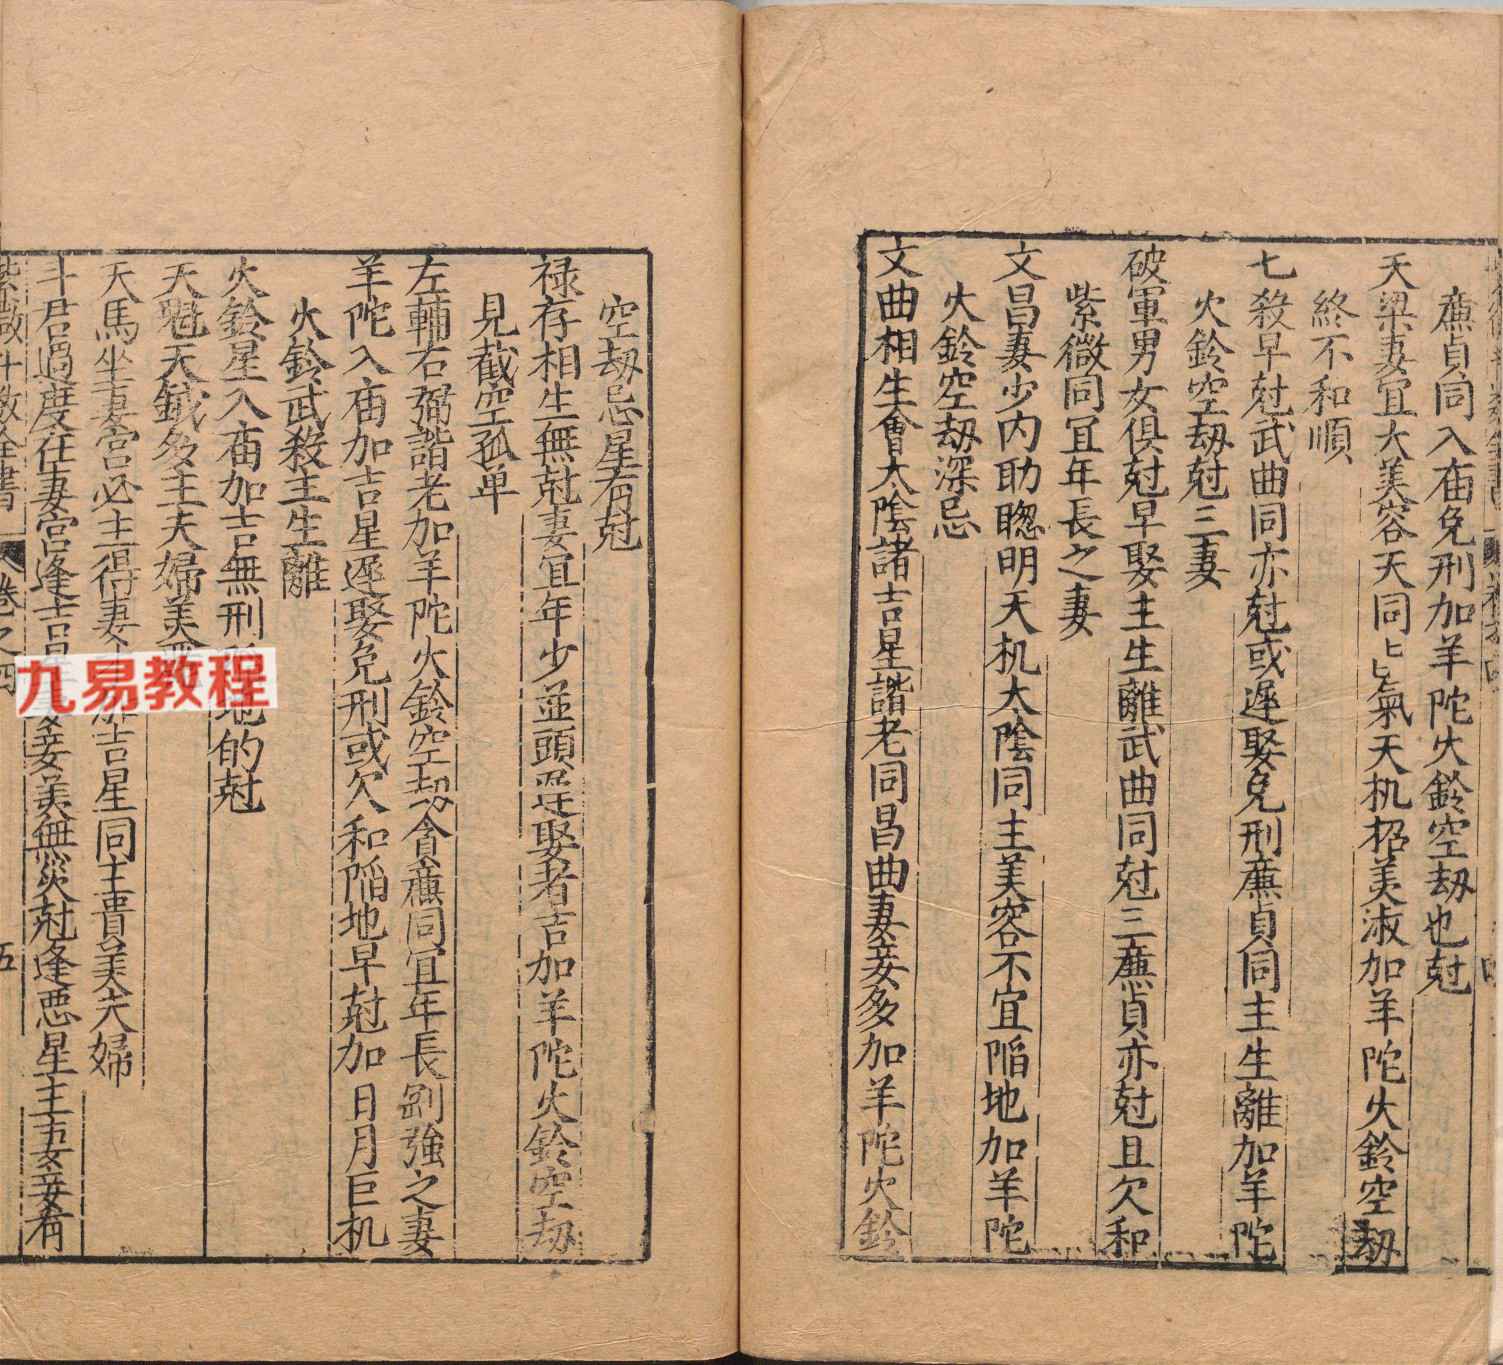 亷貞同入庙免刑加羊陀火鈴空刼也尅
天梁妻宜大美容天同〻皆氣天机招美淑加羊陀火鈴空刼
終不和順
七殺早尅武曲同亦尅或遲娶免刑亷貞同主生離加羊陀
火鈴空刼尅三妻
破軍男女俱尅早娶主生離武曲同尅三亷貞亦尅且欠和
紫微同宜年長之妻
文昌妻少内助聰明天机太陰同主美容不宜陷地加羊陀
火鈴空刼深忌
文曲相生會太陰諸吉星諧老同昌曲妻妾多加羊陀火鈴
空刼忌星有尅
禄存相生無尅妻宜年少並頭遲娶者吉加羊陀火鈴空刼
見截空孤单
左輔右弼諧老加羊陀火鈴空刼貪亷同宜年長剛強之妻
羊陀入庙加吉星遲娶免刑或欠和陷地早尅加日月巨机
火鈴武殺主生離
火鈴星入庙加吉無刑地的尅
天魁天鉞多主夫婦美
天馬坐妻宫必主得妻加吉星同主貴美夫婦
斗君過度在妻宫逢吉星妾美無災尅逢恶星主妻妾有
紫微斗数全書 卷之四
五
九易教程